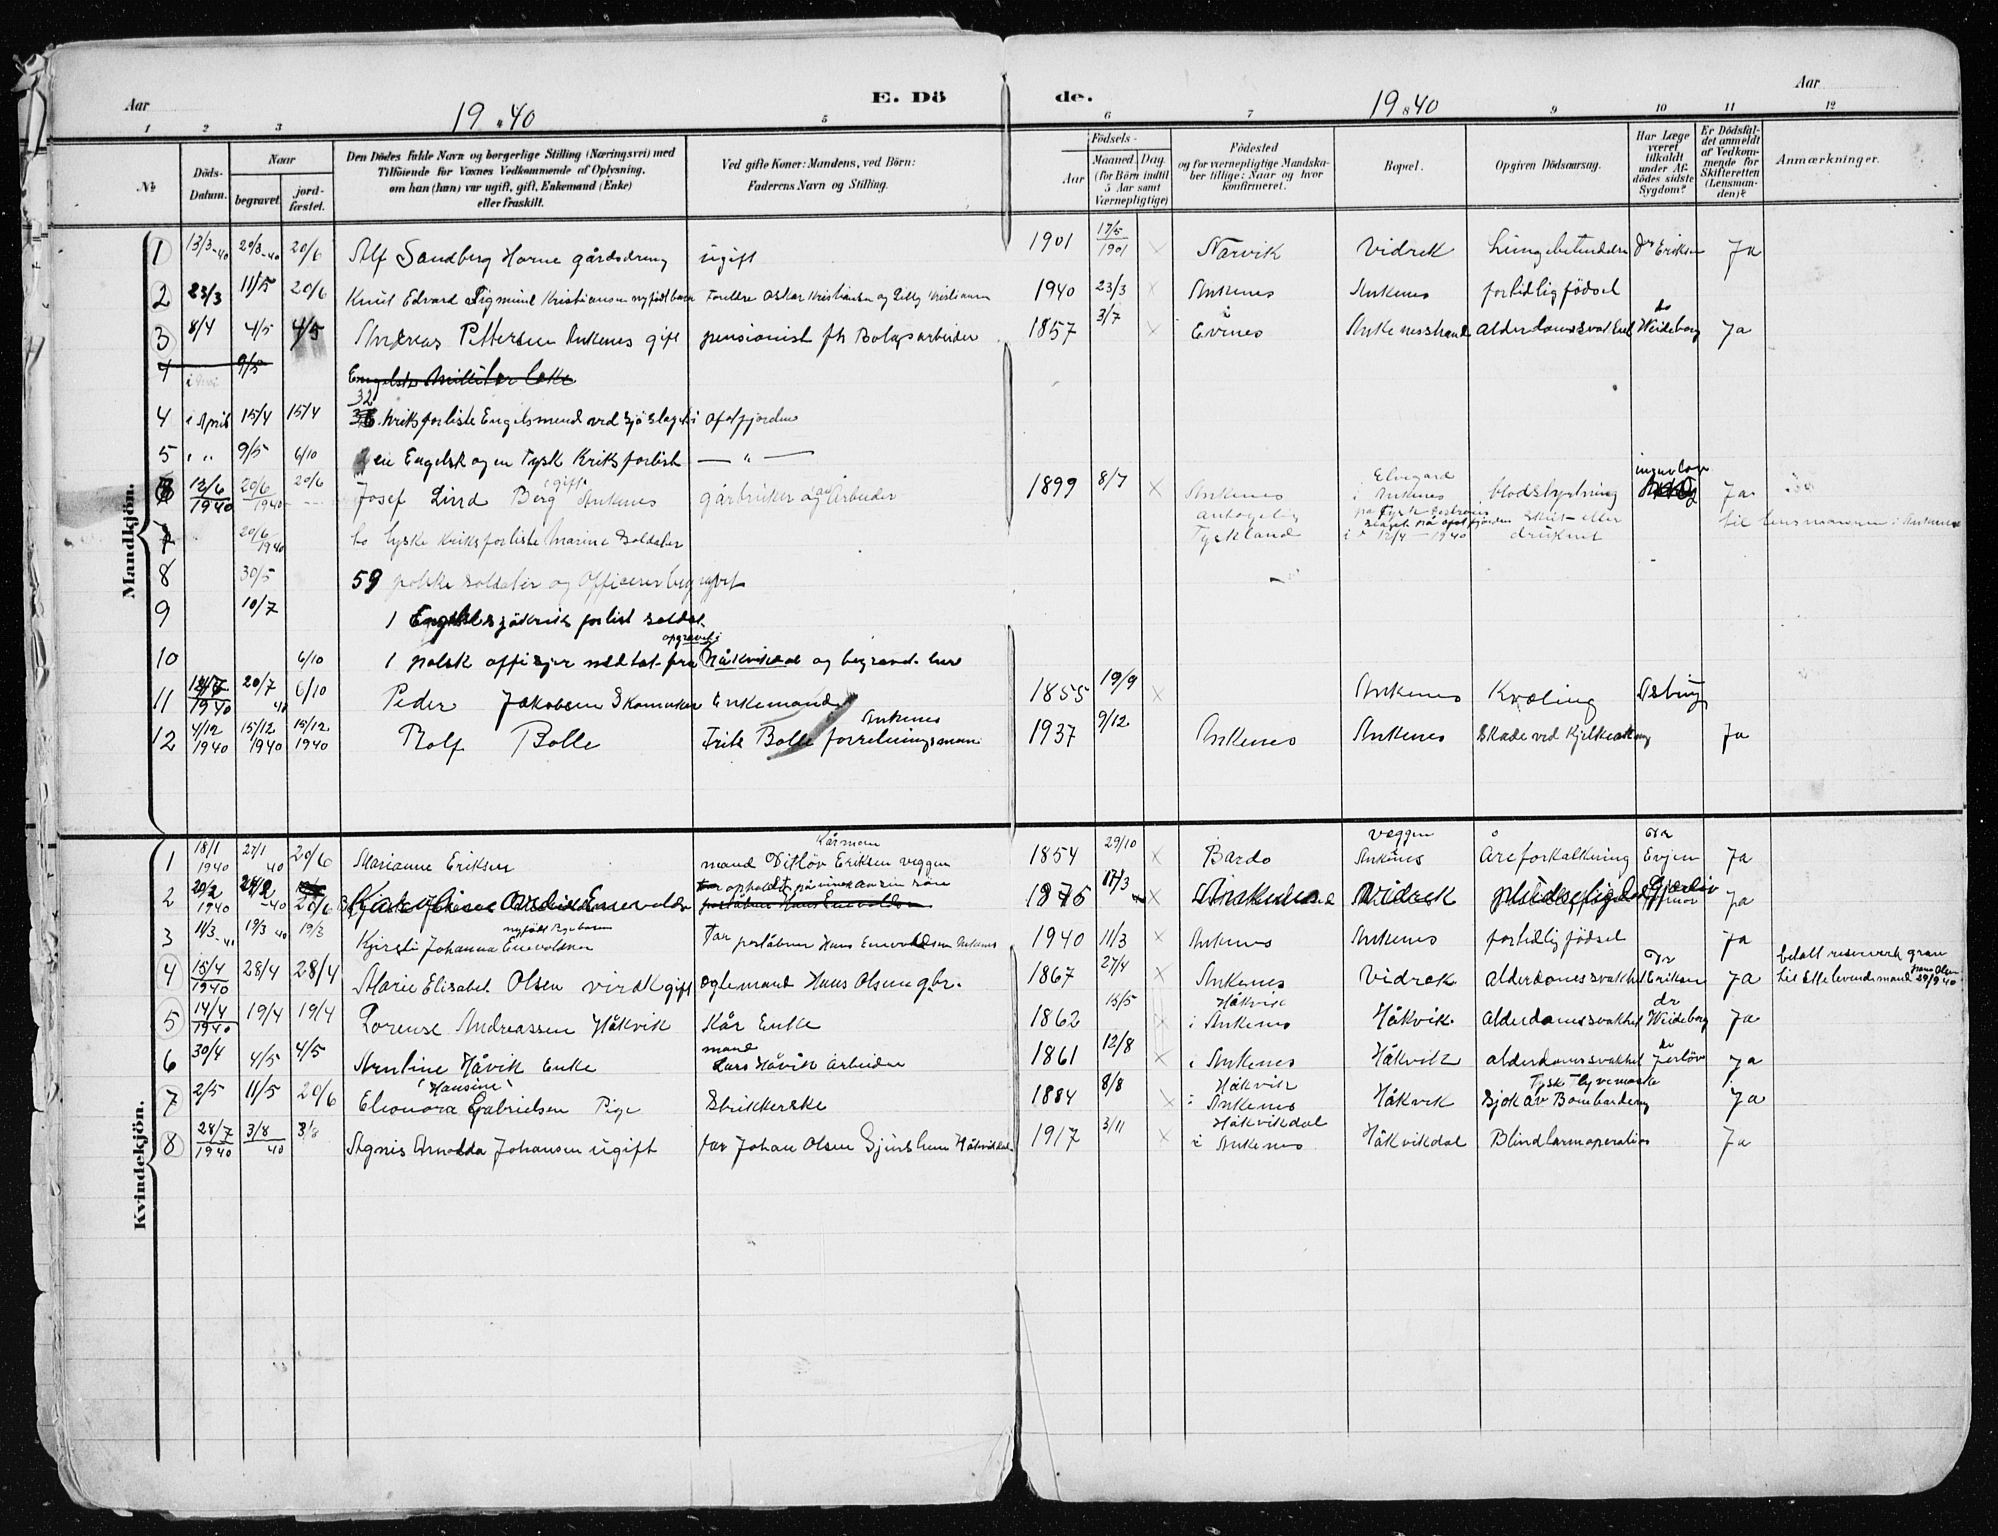 Aar 19 40 E. Dö de. 19 40 Aar
1 2 3 5 6 7 8 9 10 11 12
№ Döds-Datum. Naar begravet. jordfæstet. Den Dödes fulde Navn og borgerlige Stilling (Næringsvei) med Tilföiende for Voxnes Vedkommende af Oplysning, om han (hun) var ugift, gift, Enkemand (Enke) eller fraskilt. Ved gifte Koner: Mandens, ved Börn: Faderens Navn og Stilling. Födsels- Aar Maaned (for Börn indtil 5 Aar samt Værnepligtige) Dag. Födested og for værnepligtige Mandskaber tillige: Naar og hvor konfirmeret. Bopæl. Opgiven Dödsaarsag. Har Læge været tilkaldt under Afdödes sidste Sygdom? Er Dödsfaldet anmeldt af Vedkommende for Skifteretten (Lensmanden)? Anmærkninger.
Mandkjön.
1 13/3-40 20/3-40 20/6 Alf Sandberg Horne gårdsdreng ugift 1901 17/5 1901 Narvik Vidrek Lungebetendelse Dr Eriksen Ja
2 23/3 11/5 20/6 Knut Edvard Sigmund Kristiansen nyfödt barn Foreldre Oskar Kristiansen og Lilly Kristiansen 1940 23/3 Ankenes Ankenes fortidlig födsel
3 8/4 4/5 4/5 Andreas Pettersen Ankenes gift pensionist fh Bolagsarbeider 1857 3/7 i Evenes Ankenesstrand Alderdomssvakhet dr Weideborg Ja
4 9/5 Engelsk Militær
4 i April 15/4 15/4 32 Kriksforliste Engelsmend ved Sjöslaget i Ofotfjorden
5 " " 9/5 6/10 en Engelsk og en Tysk Kriksforlist — " —
6 12/6 1940 20/6 1940 20/6 Josef Lind Berg gift Ankenes gårbruker og Arbeider 1899 8/7 Ankenes Elvegard i Ankenes blodstyrtning ingen lege Ja
7 20/6 1940 to tyske Kriksforliste Marine Soldater antagelig Tyskland på Tysk slaget på Ofotfjorden 12/4 - 1940 Skut- eller druknet til lensmannen i Ankenes
8 30/5 59 polske soldater og Officerer begravet
9 10/7 1 Engelsk sjökrik forlist soldat
10 6/10 1 polsk offisjer nedtat fra opgravet i Håkvikdal og begravd. her
11 1940 20/7 40 6/10 Peder Jakobsen Skomaker Enkemand 1855 19/9 Ankenes Kvæling
12 4/12 1940 15/12 1940 15/12 1940 Rolf Bolle Frik Bolle forretningsmann Ankenes 1937 9/12 Ankenes Ankenes Skade ved Kjelkeaking Ja
Kvindekjön.
1 18/1 1940 27/1 40 20/6 Marianne Eriksen mand Ditlöv Eriksen veggen Kårmann 1854 29/10 Bardo veggen Ankenes Åreforkalkning Dr Evjen Ja
2 20/2 1940 40 20/6 1875 17/3 Ankenes Vidrek Ja
3 11/3-40 19/3 40 19/3 Kjirsti Johanna Enevoldsen nyfödt Far Hans Enevoldsen Ankenes 1940 11/3 Ankenes Ankenes fortidlig födsel Ja
4 15/4 1940 28/4 28/4 Marie Elisabet Olsen virek gift egtemand Hans Olsen gbr. 1867 27/4 Ankenes Vidrek Alderdomssvakhet Dr Eriksen Ja betalt reservert grav til etterlevende mand Hans Olsen 29/9 40
5 14/4 1940 19/4 19/4 Lorense Andreassen Håkvik Kår Enke 1862 15/5 Håkvik i Ankenes Håkvik. Alderdomssvakhet dr Weideborg Ja
6 30/4 4/5 4/5 Håvik Enke mand Lars Håvik Arbeider 1861 12/8 i Ankenes Håkvik Alderdomssvakhet dr Ja
7 2/5 11/5 20/6 Eleonora (Hansine) Gabrielsen Pige Strikkerske 1884 8/8 Håkvik i Ankenes Håkvik Tysk Flyvemaske Sjok av Bombardering Ja
8 28/7 1940 3/8 40 3/8 Agnis Arnolda Johansen ugift far Johan Olsen Håkvikdal 1917 3/11 Håkvikdal i Ankenes Håkvikdal Blindtarmoperation Ja